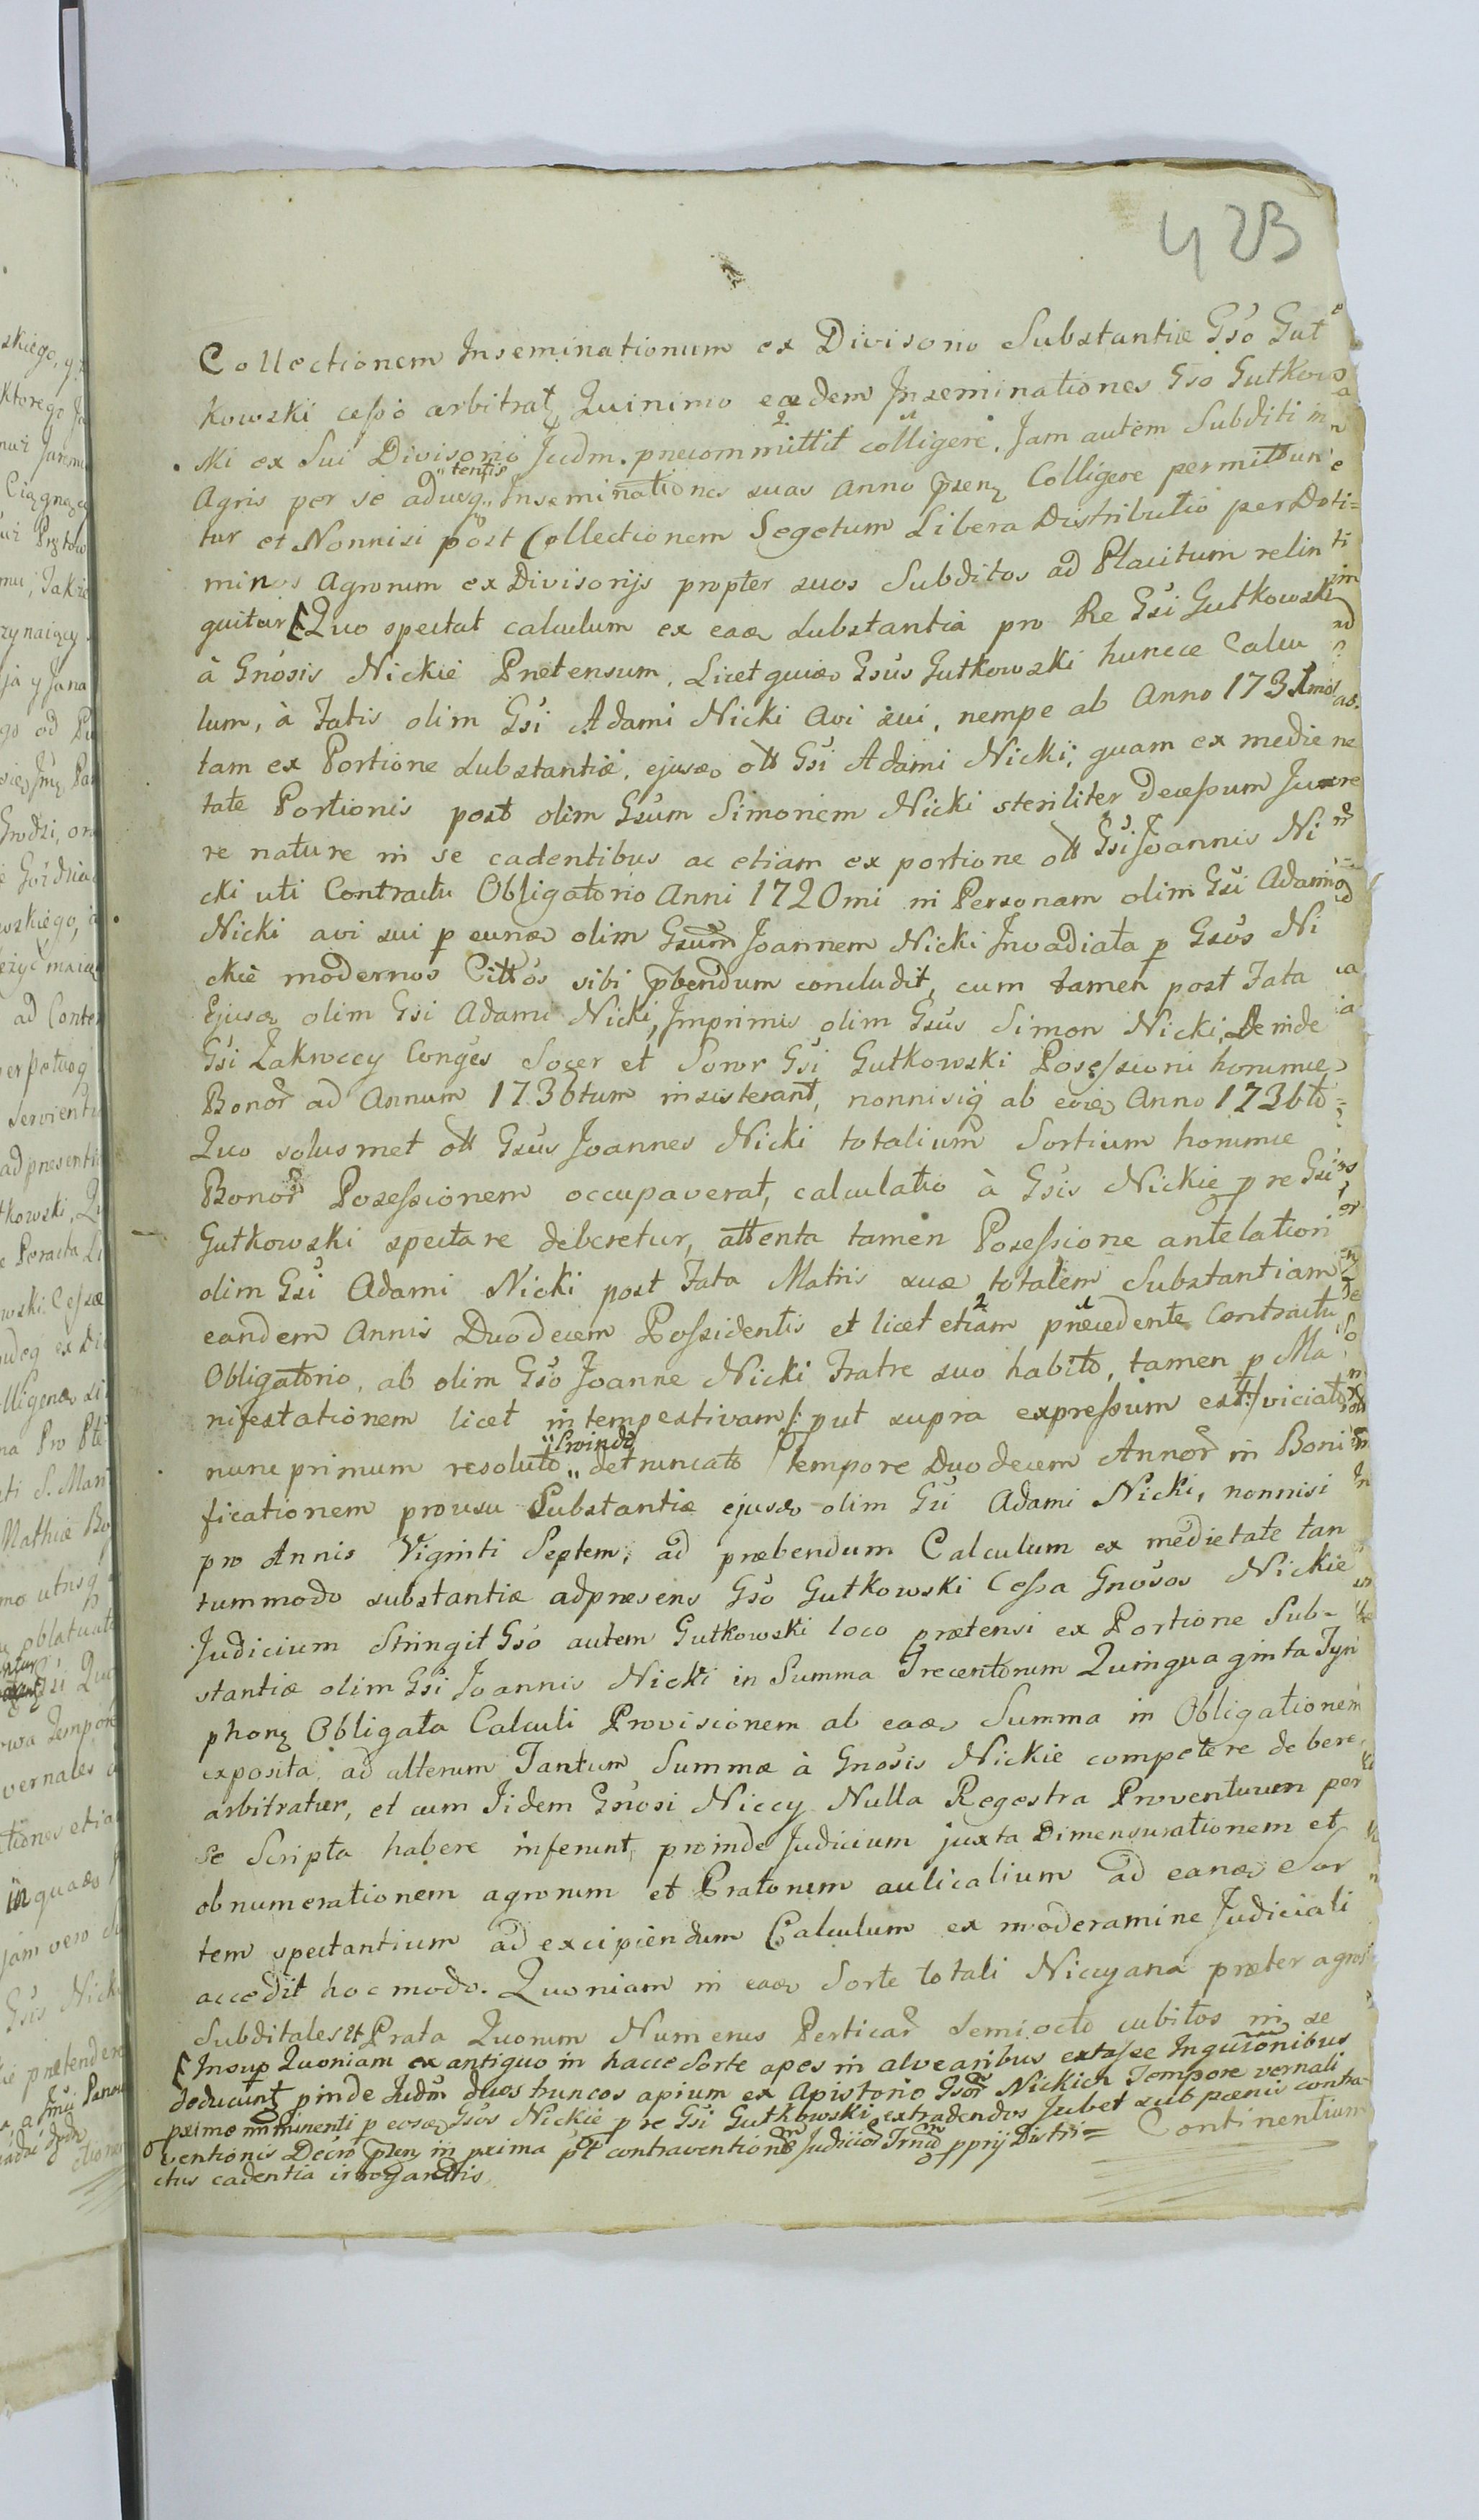 423
Collectionem Inseminationum ex Divisorio Substantiæ Gso Gut
kowski cesso arbitrat, Quinimo eædem Inseminationes Gso Gutkow
ski ex Sui Divisorio Judm. præcommittit colligere. Jam autem Subditi in
Agris per se "tentis" Inseminationes suas anno præsen Colligere permittun
tur et Nonnisi post Collectionem Segetum Libera Distributio per Do
minos Agrorum ex Divisorijs propter suos Subditos ad Placitum relin
quitur Quo spectat calculum ex eaæ substantia pro Re Gsi Gutkowski
à Gnosis Nickie Prætensum. Licet Gsus Gutkowski huncce Calcu
lum, à Fatis olim Gsi Adami Nicki Avi sui, nempe ab Anno 1731mo
tam ex Portione substantiæ, ejusæ olt Gsi Adami Nicki; quam ex medie
tate Portionis post olim Gsum Simonem Nicki steriliter decessum Ju
re nature in se cadentibus ac etiam ex portione olt Gsi Joannis Ni
cki uti Contractu Obligatorio Anni 1720mi in Personam olim Gsi Adami
Nicki avi sui p eunæ olim Gsum Joannem Nicki Invadiata p Gsos Ni
ckie modernos Cittos sibi pbendum concludit, cum tamen post Fata
Ejusæ olim Gsi Adami Nicki, Imprimis olim Gsus Simon Nicki, Deinde
Gsi Zakroccy Conges Socer et Soror Gsi Gutkowski Posessioni horumce
Bonor ad Annum 1736tum insisterant, nonnisi ab Anno 1736to
Quo solusmet olt Gsus Joannes Nicki totalium Sortium horumce
Bonor Posessionem occupaverat, calculatio à Gsis Nickie p re Gsi
Gutkowski spectare deberetur, attenta tamen Posessione antelatiori
olim Gsi Adami Nicki post Fata Matris suæ totalem Substantiam
eandem Annis Duodecem Possidentis et licet etiam præcedente Contractu
Obligatorio, ab olim Gso Joanne Nicki Fratre suo habito, tamen p Ma
nifestationem licet intempestivam /: put supra expressum est :/ viciato
nunc primum resoluto "proinde" detruncato tempore Duodecem Annor in Boni
ficationem pro usu Substantiæ ejusæ olim Gsi Adami Nicki, nonnisi
pro Annis Viginti Septem, ad præbendum Calculum ex medietate tan
tummodo substantiæ adpræsens Gso Gutkowski Cessa Gnosos Nickie
Judicium Stringit Gso autem Gutkowski loco prætensi ex Portione Sub-
stantiæ olim Gsi Joannis Nicki in Summa Trecentorum Quinquaginta Tyn
phon Obligata Calculi Provisionem ab eaæ Summa in Obligationem
exposita, ad alterum Tantum Summæ à Gnosis Nickie competere debere,
arbitratur, et cum Iidem Gsnosi Niccy Nulla Regestra Proventuum per
se Scripta habere inferunt, proinde Judicium juxta Dimensurationem et
obnumerationem agrorum et Pratorum aulicalium ad eanæ Sor
tem spectantium ad excipiendum Calculum ex moderamine Judiciali
accedit hoc modo. Quoniam in eaæ Sorte totali Niccyana præter agros
Subditales et Prata Quorum Numerus Perticar Semiocto cubitos in se
Insup Quoniam ex antiquo in hacce Sorte apes in alvearibus extasse Inquironibus
deducunt pinde Judm duos truncos apium ex Apistorio Gsor Nickich Tempore vernali
pximo imminenti p eosæ Gsos Nickie p re Gsi Gutkowski extradendos Jubet sub pænis contra
ventionis Decro præsen in pxima contraventione Judicior Trnd pprij Distri=
ctus cadentia irrogandis.
Continentium